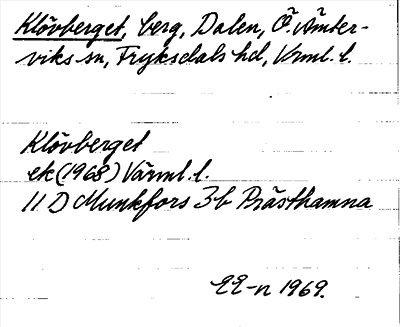 Klövberget, berg, Dalen, Ö. Ämter-
viks sn, Fryksdals hd, Vrml. l.
Klövberget
ek (1968) Värml. l.
11 D Munkfors 3b Prästhamna
EE-n 1969.